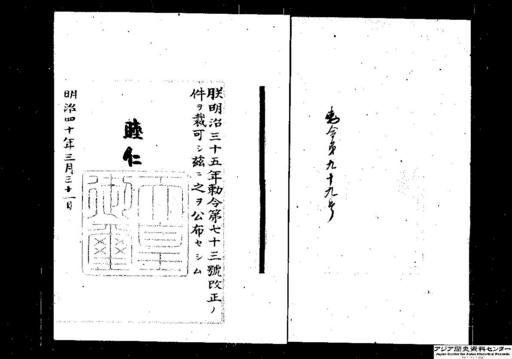 勅令第九十九号
朕明治三十五年勅令第七十三號改正ノ
件ヲ裁可シ茲ニ之ヲ公布セシム
睦仁
天皇御璽
明治四十年三月三十一日
アジア歴史資料センター
Japan Center for Asian Historical Records